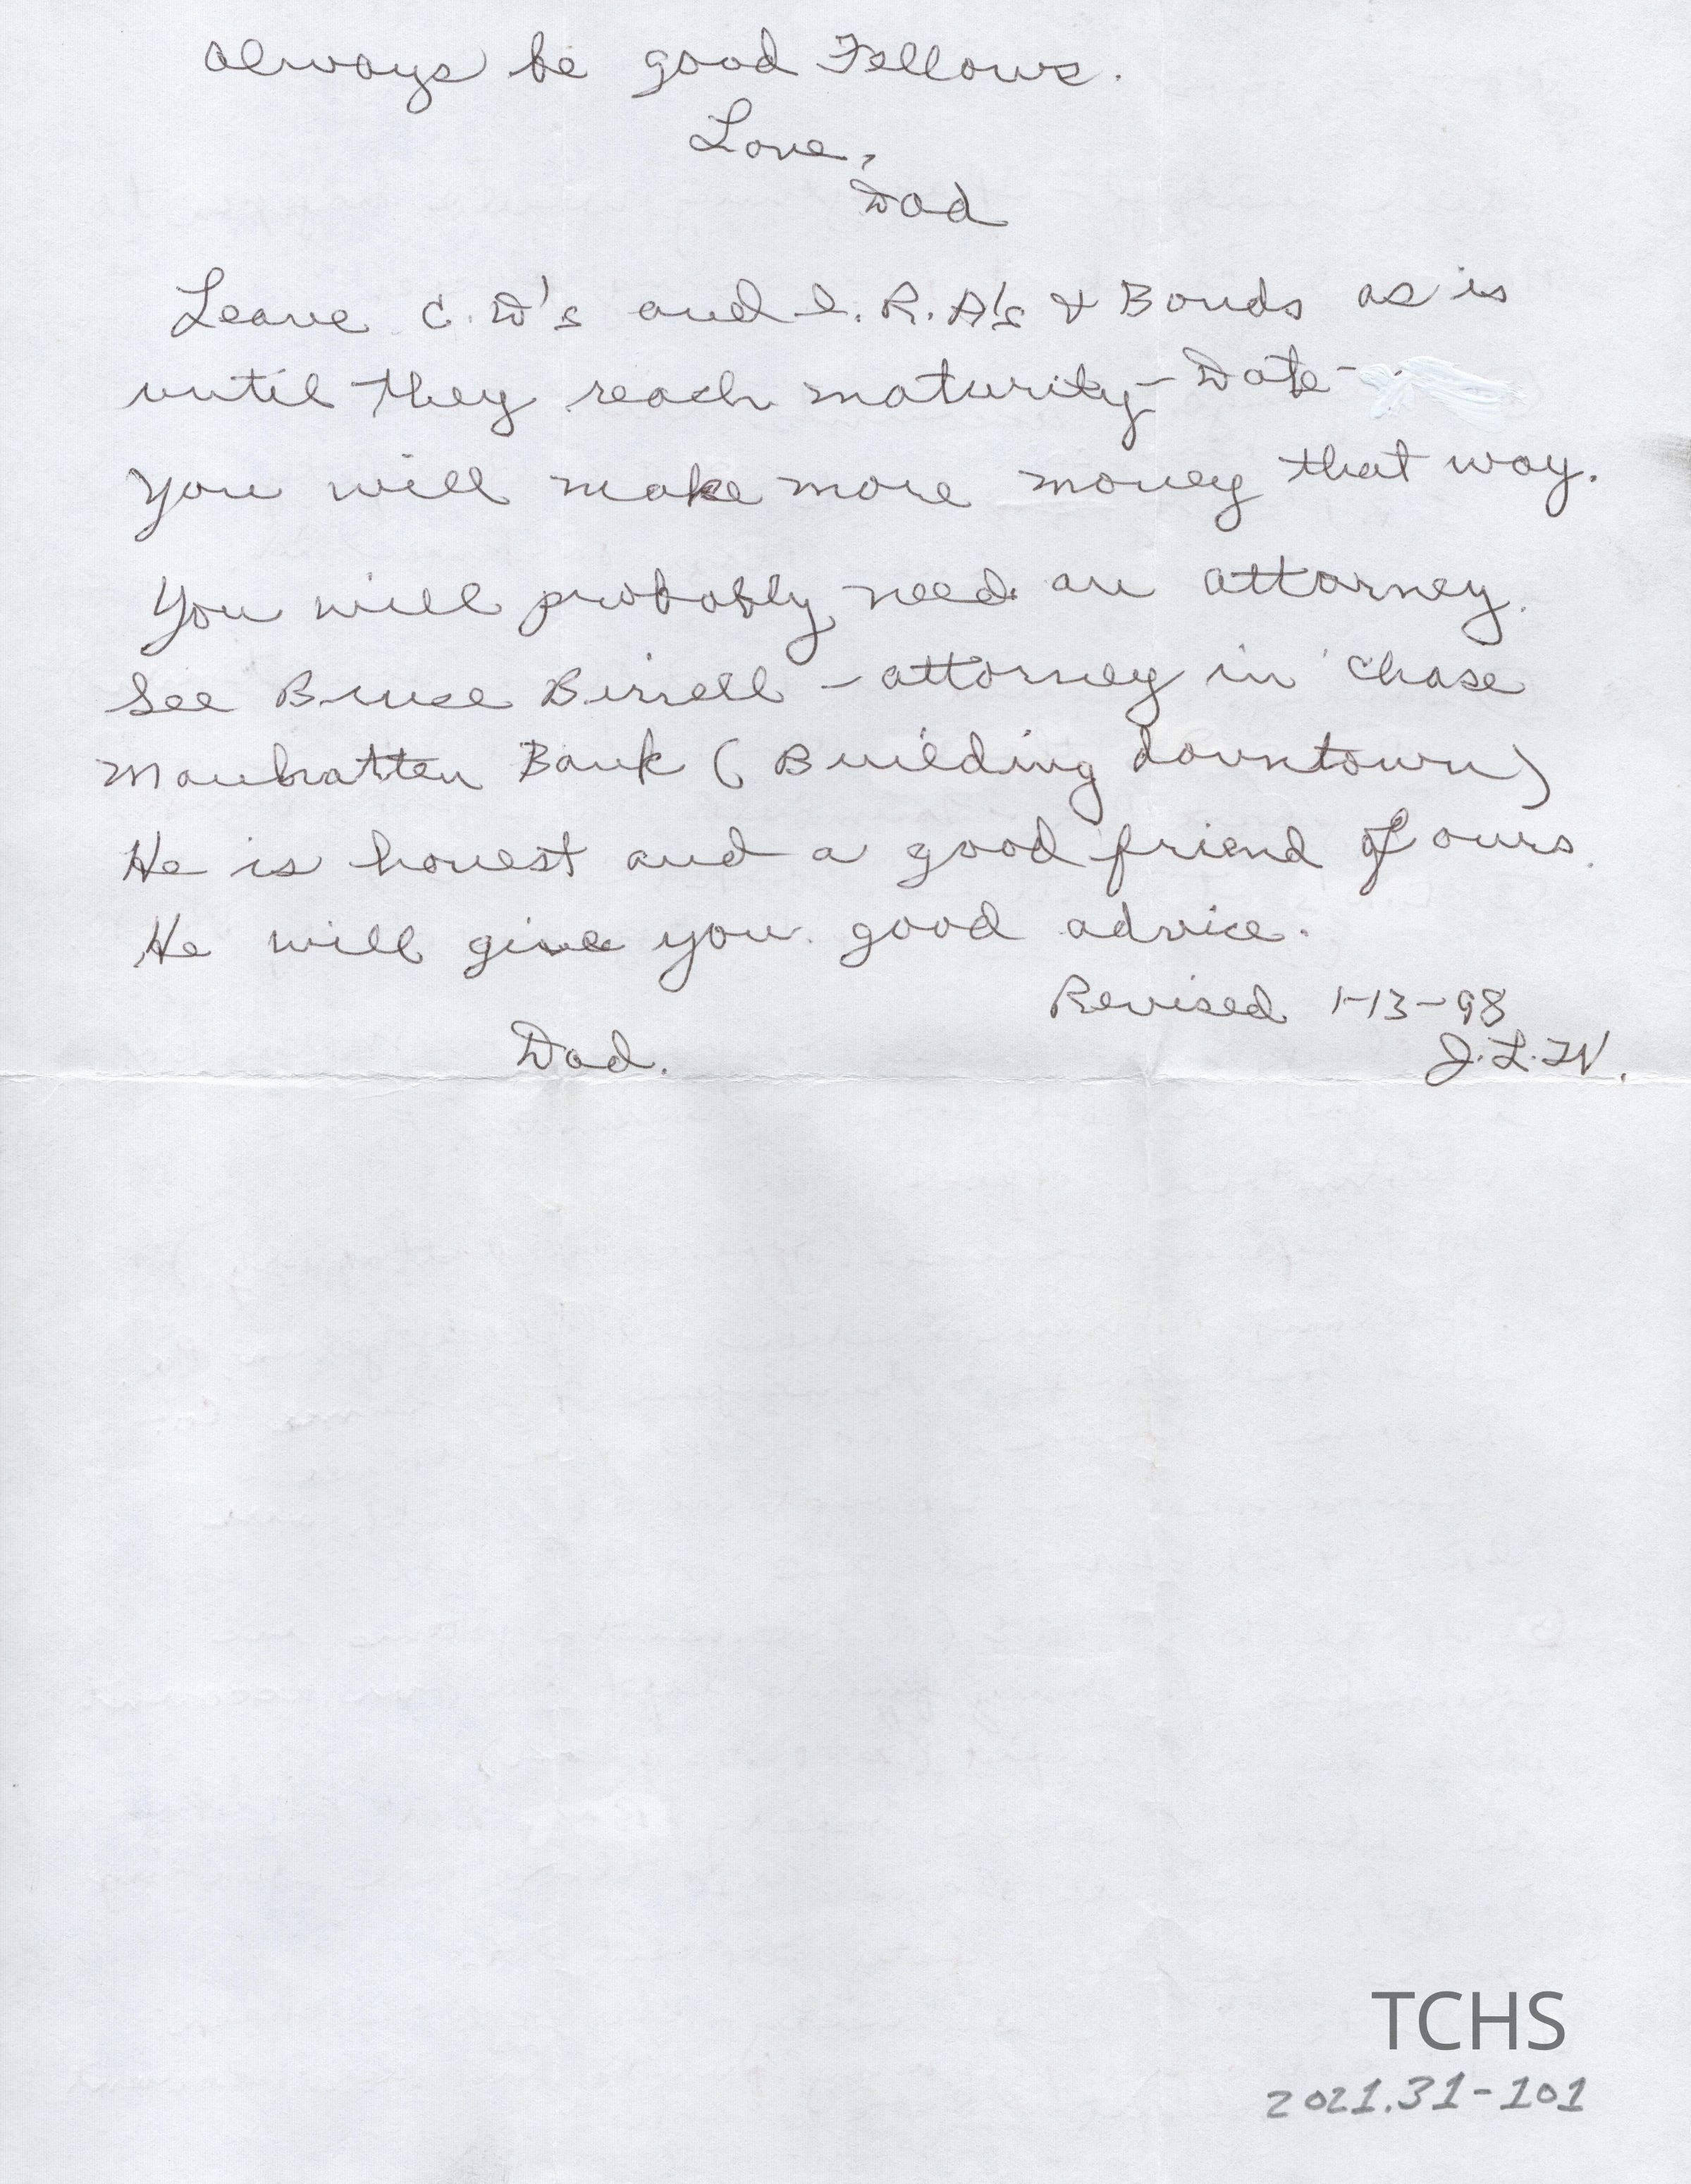 always be good Fellows.
Love,
Dad
Leave C.D's and I.R.A's & Bonds as is
until they reach maturity - Date -
You will make more money that way.
You will probably need an attorney.
See Bruce Birrell - attorney in Chase
Manhatten Bank (Building downtown)
He is honest and a good friend of ours.
He will give you good advice.
Revised 1-13-98
Dad. J.L.W.
TCHS
2021.31-101